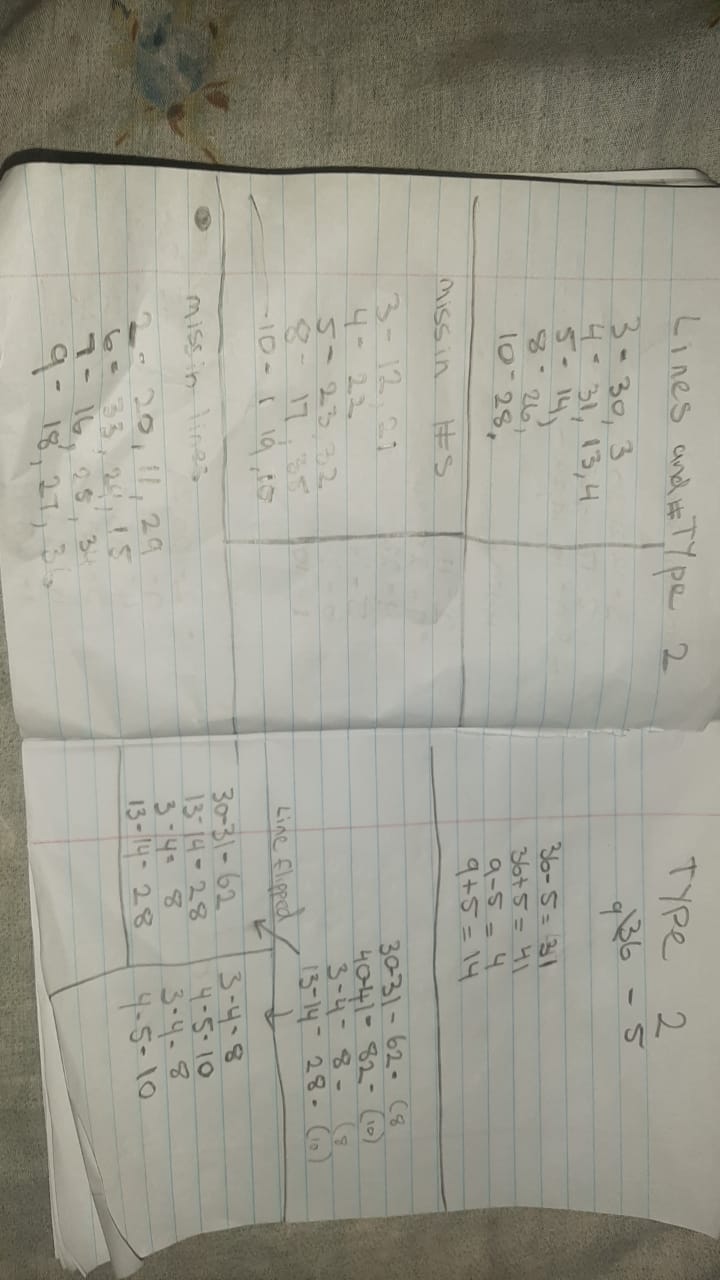 Lines and # Type 2
3 - 30, 3
4 - 31, 13, 4
5 - 14,
8 - 26,
10 - 28,
missin #s
3 - 12, 21
4 - 22
5 - 23, 32
8 - 17, 35
10 - 1, 19,
missin lines
2 - 20, 11, 29
6 - 33, 24, 15
7 - 16, 25, 34
9 - 18, 27, 36,
Type 2
36 - 5
9
36 - 5 = 31
36 + 5 = 41
9 - 5 = 4
9 + 5 = 14
30-31 - 62 - (8
40-41 - 82 - (10)
3 - 4 - 8 - (8
13-14 - 28 - (10)
Line flipped
30-31 - 62
13-14 - 28
3 - 4 = 8
13-14 - 28
3 - 4 - 8
4 - 5 - 10
3 - 4 - 8
4 - 5 - 10